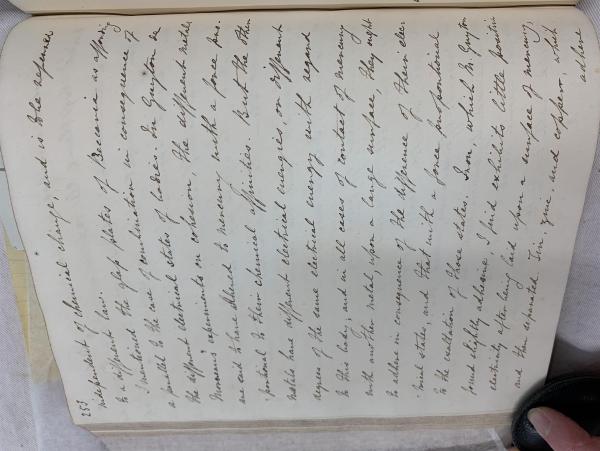 253
independent of chemical change, and is the reference
to a different law.
I mentioned the glass plates of Beccaria as affording
a parallel to the case of combination in consequence of
the different electrical states of bodies. In Guyton de
Morveau's experiments on cohesion, the different metals
are said to have adhered to mercury with a force pro-
portional to their chemical affinities. But the other
metals have different electrical energies, or different
degrees of the same electrical energy with regard
to this body; and in all cases of contact of mercury
with another metal, upon a large surface, they ought
to adhere in consequence of the difference of their elec-
trical states, and that with a force proportional
to the exaltation of those states. Iron, which M. Guyton
found slightly adhesive I find exhibits little positive
electricity after being laid upon a surface of mercury,
and then separated. Tin zinc, and copper, which
adhere